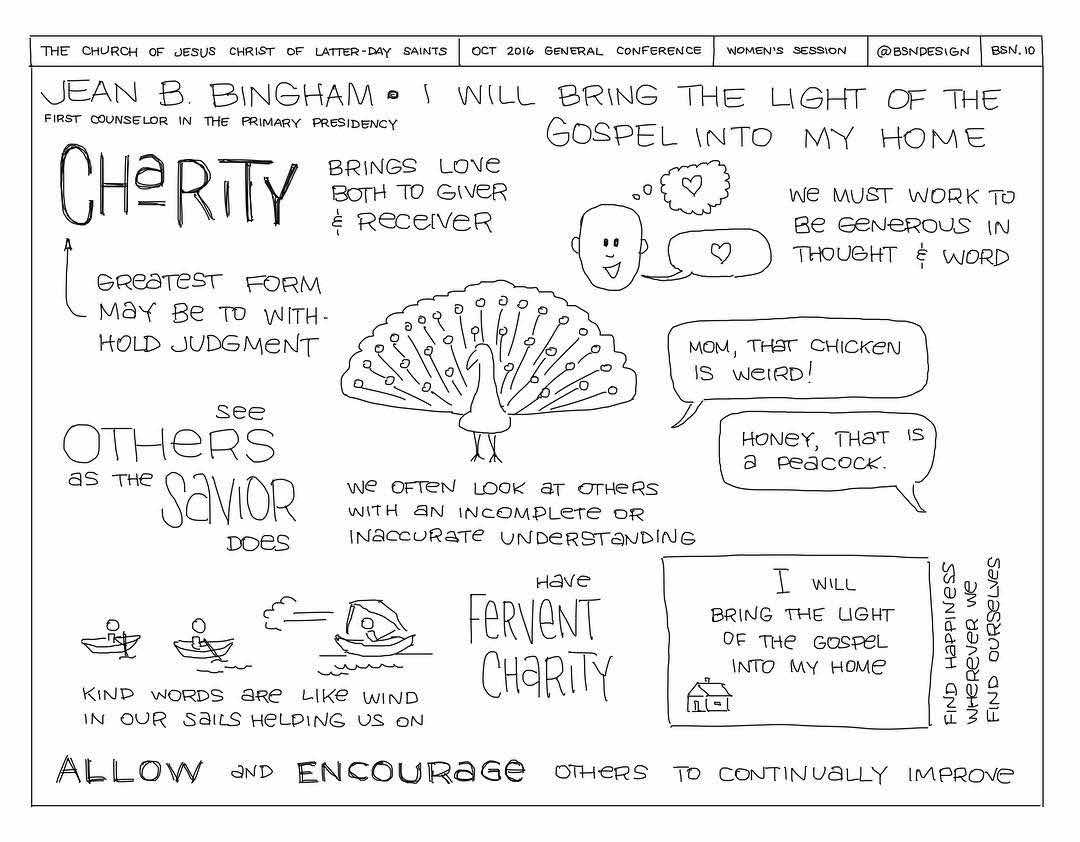 THE CHURCH OF JESUS CHRIST OF LATTER-DAY SAINTS
OCT 2016 GENERAL CONFERENCE
WOMEN'S SESSION
@BSNDESIGN
BSN.10
JEAN B. BINGHAM • I WILL BRING THE LIGHT OF THE
GOSPEL INTO MY HOME
FIRST COUNSELOR IN THE PRIMARY PRESIDENCY
CHARITY
BRINGS LOVE
BOTH TO GIVER
& RECEIVER
WE MUST WORK TO
BE GENEROUS IN
THOUGHT & WORD
GREATEST FORM
MAY BE TO WITH-
HOLD JUDGMENT
MOM, THAT CHICKEN
IS WEIRD!
HONEY, THAT IS
A PEACOCK.
SEE
OTHERS
AS THE
SAVIOR
DOES
WE OFTEN LOOK AT OTHERS
WITH AN INCOMPLETE OR
INACCURATE UNDERSTANDING
KIND WORDS ARE LIKE WIND
IN OUR SAILS HELPING US ON
HAVE
FERVENT
CHARITY
I WILL
BRING THE LIGHT
OF THE GOSPEL
INTO MY HOME
FIND HAPPINESS
WHEREVER WE
FIND OURSELVES
ALLOW AND ENCOURAGE OTHERS TO CONTINUALLY IMPROVE